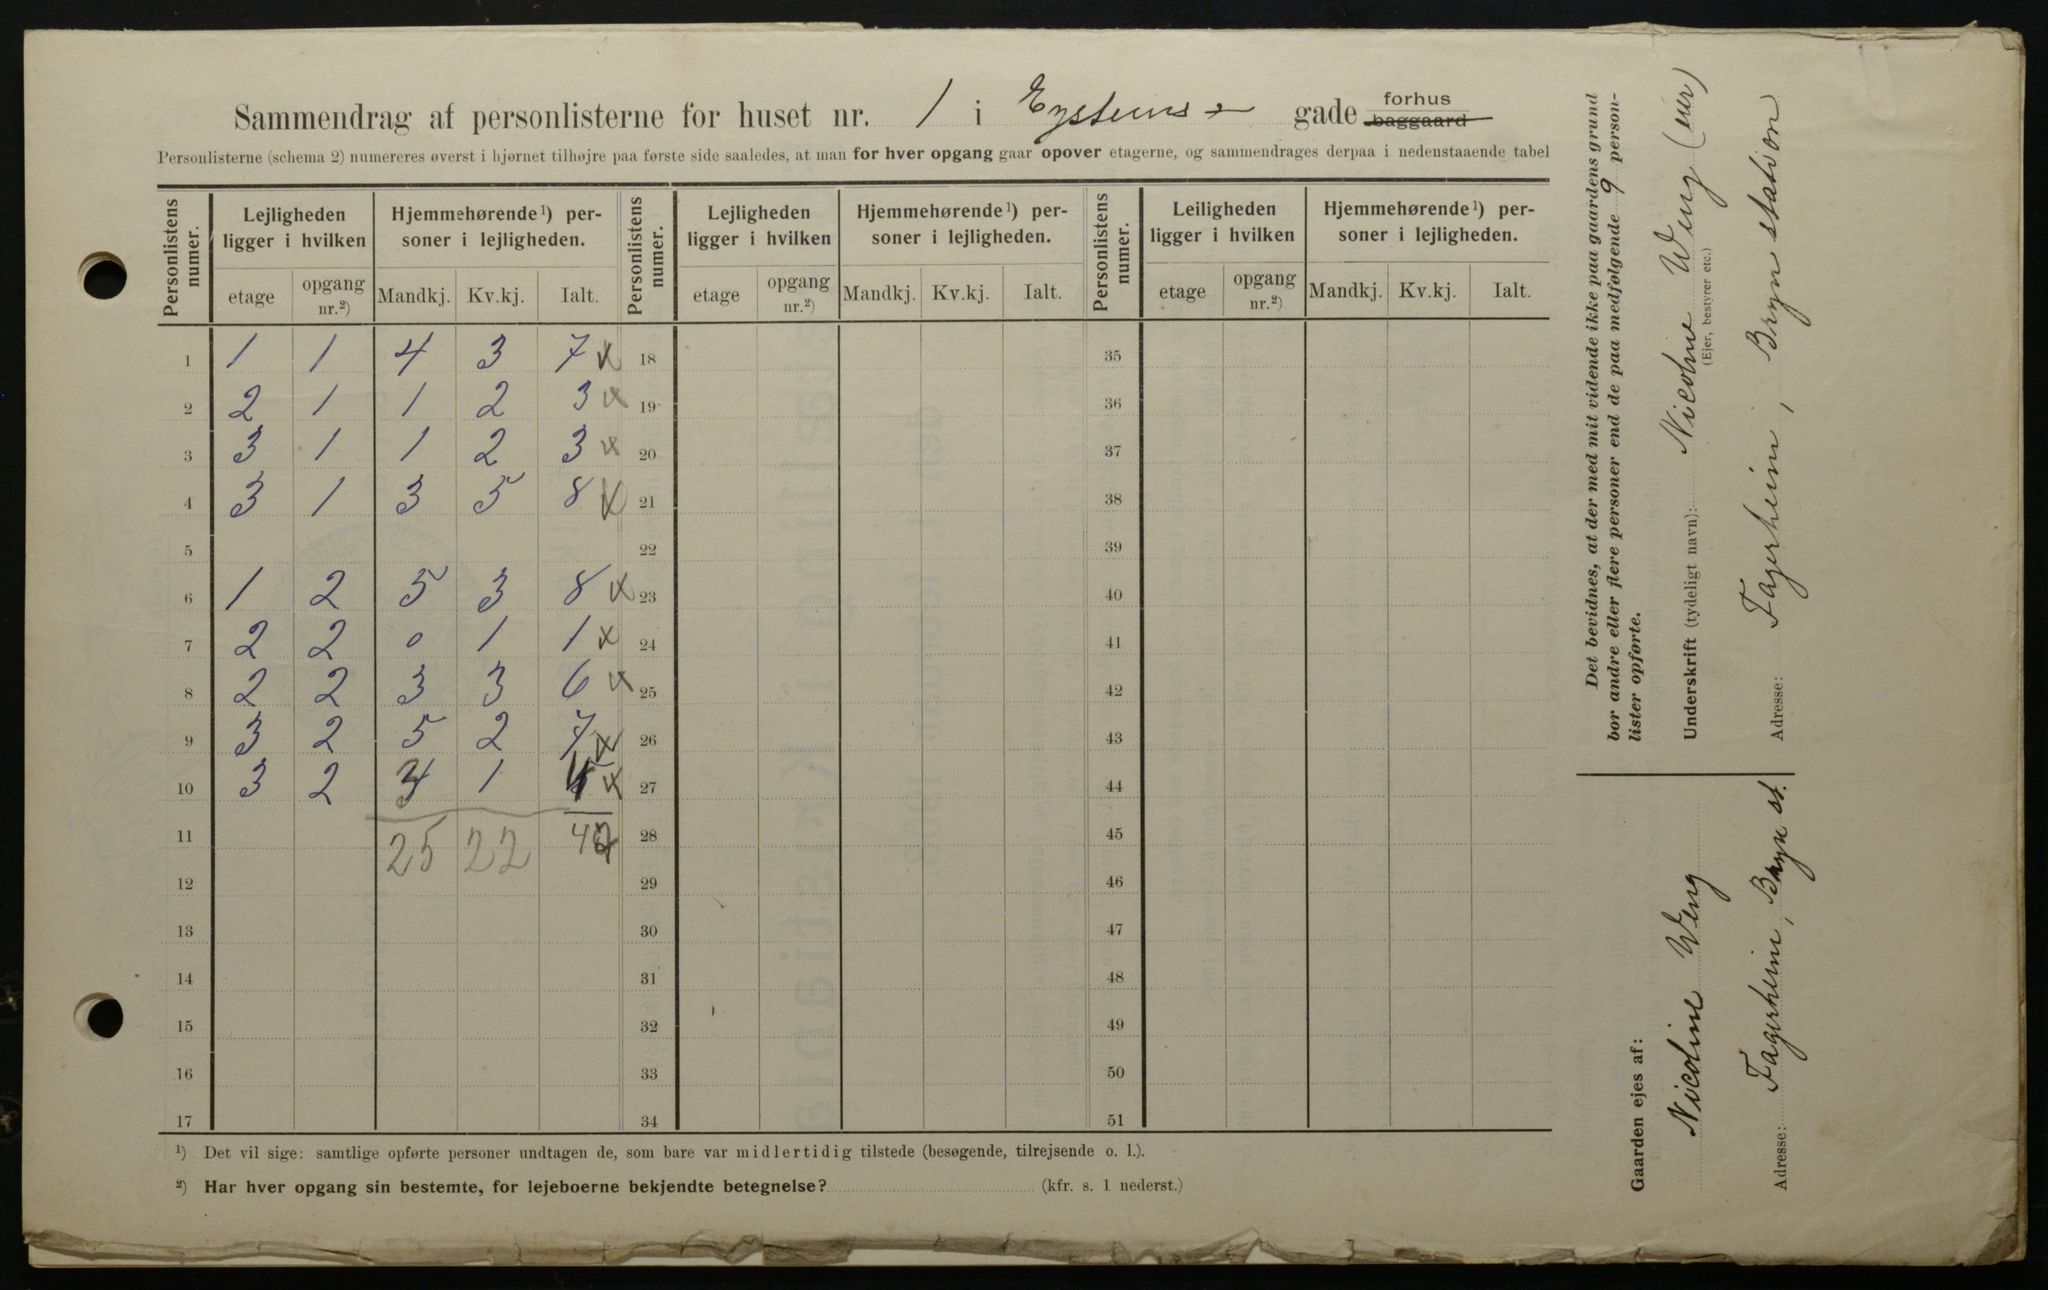 Sammendrag af personlisterne for huset nr. 1 i Eysteins gade forhus baggaard
Personlisterne (schema 2) numereres øverst i hjørnet tilhøjre paa første side saaledes, at man for hver opgang gaar opover etagerne, og sammendrages derpaa i nedenstaaende tabel
Personlistens numer. Lejligheden ligger i hvilken Hjemmehørende¹) personer i lejligheden. Personlistens numer. Lejligheden ligger i hvilken Hjemmehørende¹) personer i lejligheden. Personlistens numer. Leiligheden ligger i hvilken Hjemmehørende¹) personer i lejligheden.
etage opgang nr.²) Mandkj. Kv.kj. Ialt. etage opgang nr.²) Mandkj. Kv.kj. Ialt. etage opgang nr.²) Mandkj. Kv.kj. Ialt.
1 1 1 4 3 7 x 18 35
2 2 1 1 2 3 x 19 36
3 3 1 1 2 3 x 20 37
4 3 1 3 5 8 x 21 38
5 22 39
6 1 2 5 3 8 x 23 40
7 2 2 0 1 1 x 24 41
8 2 2 3 3 6 x 25 42
9 3 2 5 2 7 x 26 43
10 3 2 3 1 4 x 27 44
11 25 22 47 28 45
12 29 46
13 30 47
14 31 48
15 32 49
16 33 50
17 34 51
¹) Det vil sige: samtlige opførte personer undtagen de, som bare var midlertidig tilstede (besøgende, tilrejsende o. l.).
²) Har hver opgang sin bestemte, for lejeboerne bekjendte betegnelse? (kfr. s. 1 nederst.)
Det bevidnes, at der med mit vidende ikke paa gaardens grund
bor andre eller flere personer end de paa medfølgende 9 person-
lister opførte.
Underskrift (tydeligt navn): Nicoline Weng (eier)
(Ejer, bestyrer etc.)
Adresse: Fagerheim, Bryn station
Gaarden ejes af:
Nicoline Weng
Adresse: Fagerheim, Bryn st.